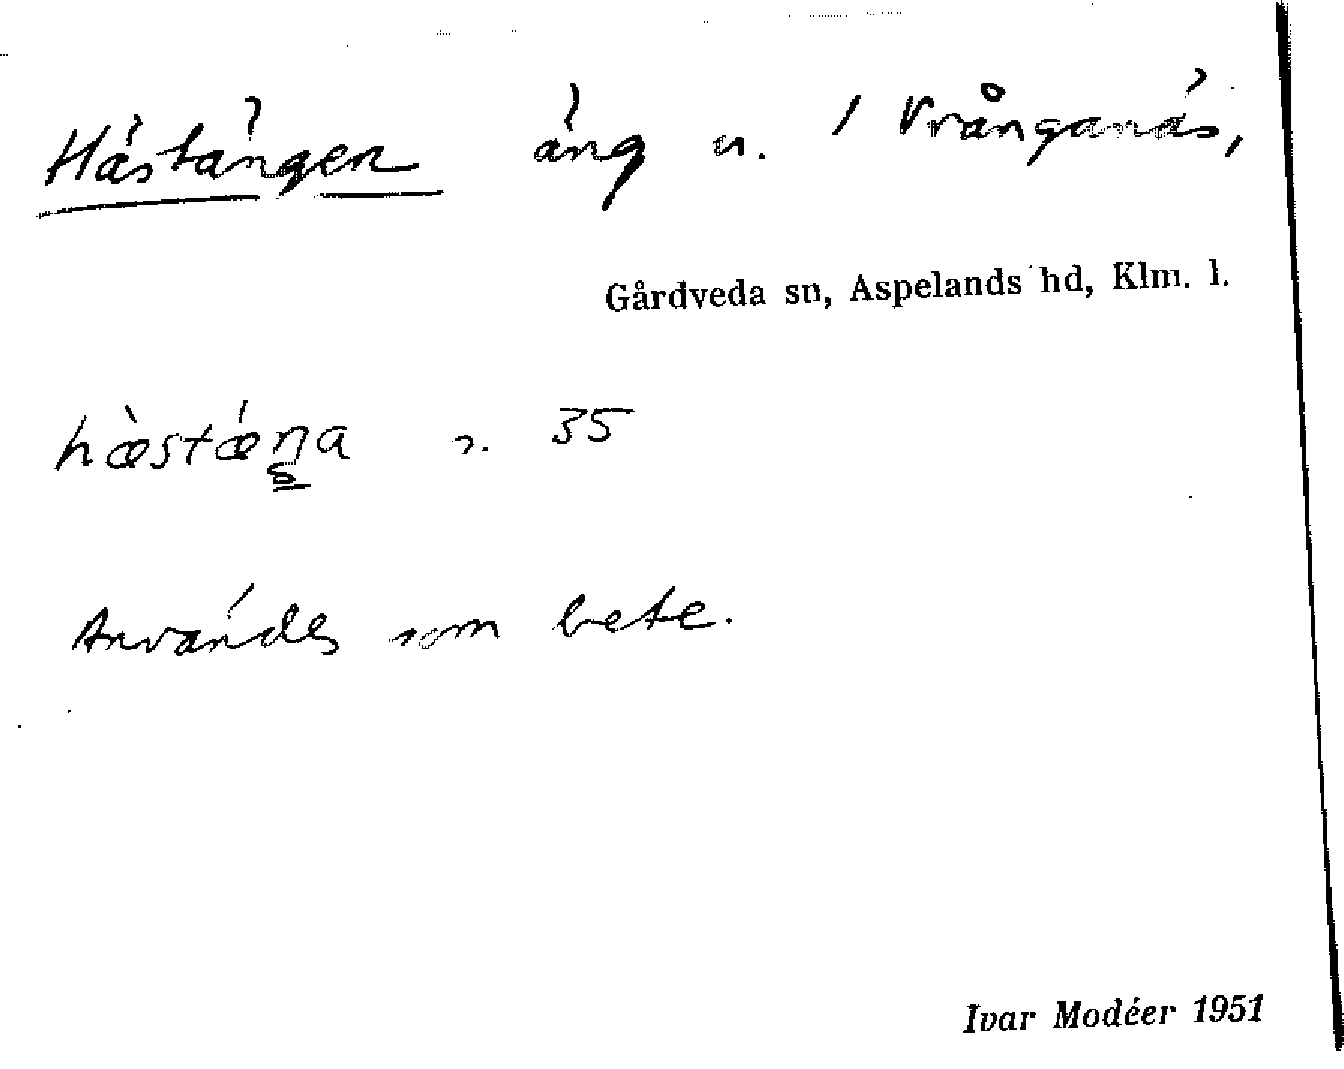 Hästängen äng n. i Vrånganäs,
Gårdveda sn, Aspelands hd, Klm. l.
hæ̀stǽŋa 35
Användes som bete.
Ivar Modéer 1951